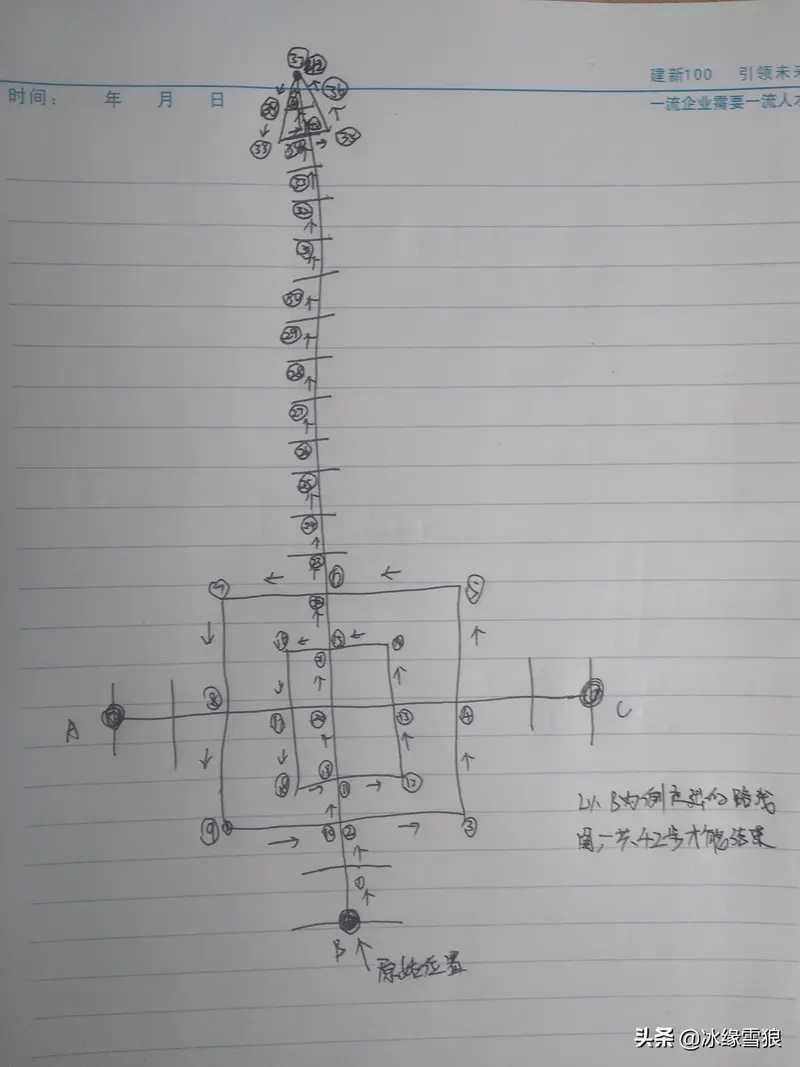 建新100 引领未来
时间: 年 月 日
一流企业需要一流人才
37 42
36
33
35
32
31
29
28
27
26
25
24
23
6
7
5
22
15
14
21
8
A
C
17
20
13
4
18
19
11
12
9
10
2
3
以B为例走地的路线
图,一共42步才能结束
1
B
原始位置
头条 @冰缘雪狼